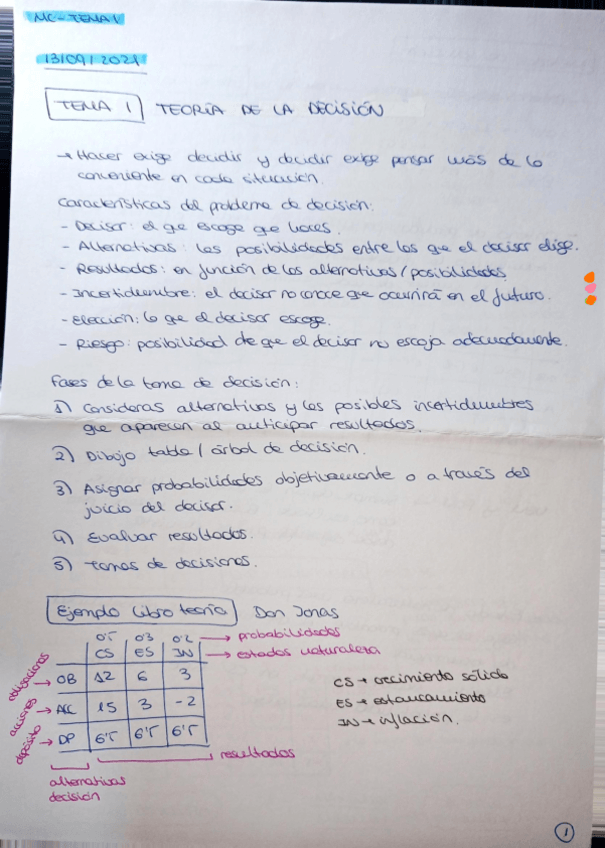 MC-TEMA 1
13/09/2021
TEMA 1 TEORÍA DE LA DECISIÓN
→ Hacer exige decidir y decidir exige pensar más de lo
conveniente en cada situación.
Características del problema de decisión:
- Decisor: el que escoge que haces.
- Alternativas: las posibilidades entre las que el decisor elige.
- Resultados: en función de las alternativas/posibilidades
- Incertidumbre: el decisor no conoce que ocurrirá en el futuro.
- Elección: lo que el decisor escoge.
- Riesgo: posibilidad de que el decisor no escoja adecuadamente.
Fases de la toma de decisión:
1) Consideras alternativas y las posibles incertidumbres
que aparecen al anticipar resultados.
2) Dibujo tabla / árbol de decisión.
3) Asignar probabilidades objetivamente o a través del
juicio del decisor.
4) Evaluar resultados.
5) Tomas de decisiones.
Ejemplo libro teoría Don Jonas
0'5 0'3 0'2 → probabilidades
CS ES IN → estados naturaleza
obligaciones → OB 12 6 3
acciones → AC 15 3 -2
depósito → DP 6'5 6'5 6'5
resultados
alternativas
decisión
CS → crecimiento sólido
ES → estancamiento
IN → inflación.
1